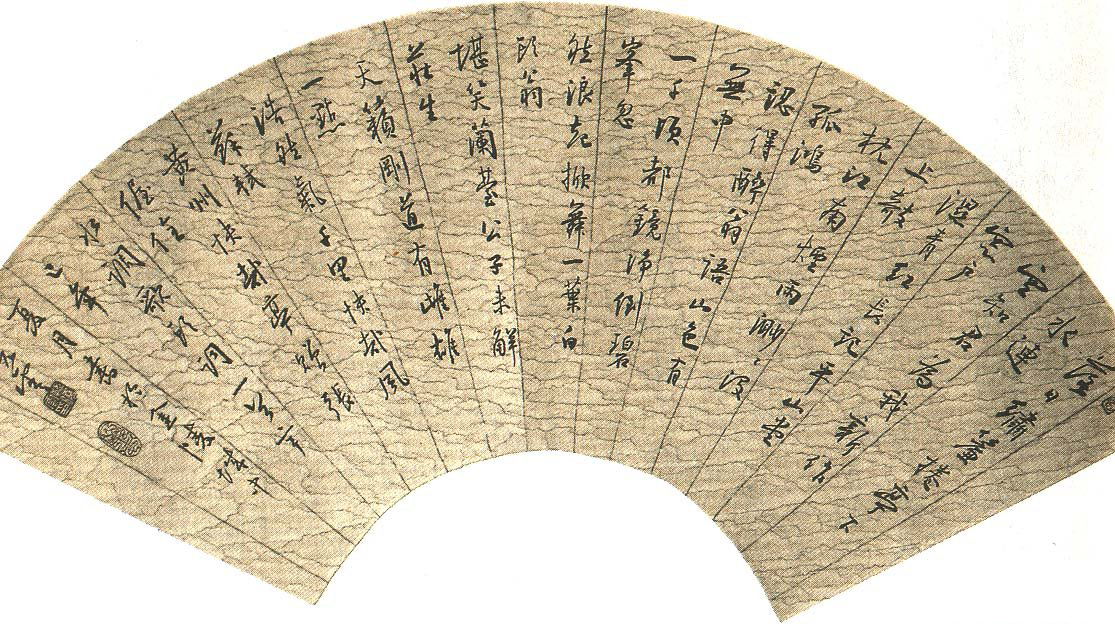 落日繡簾捲亭下
水連
空知君為我新作
窗戶
濕青紅長記平山堂
上欹
枕江南煙雨渺〻沒
孤鴻
認得醉翁語山色有
無中
一千頃都鏡淨倒碧
峯忽
然浪起掀舞一葉白
頭翁
堪笑蘭臺公子未解
莊生
天籟剛道有雌雄
一點
浩然氣千里快哉風
蘇軾
黃州快哉亭贈張
偓佺
水調歌頭詞一首
年
夏月書於金陵